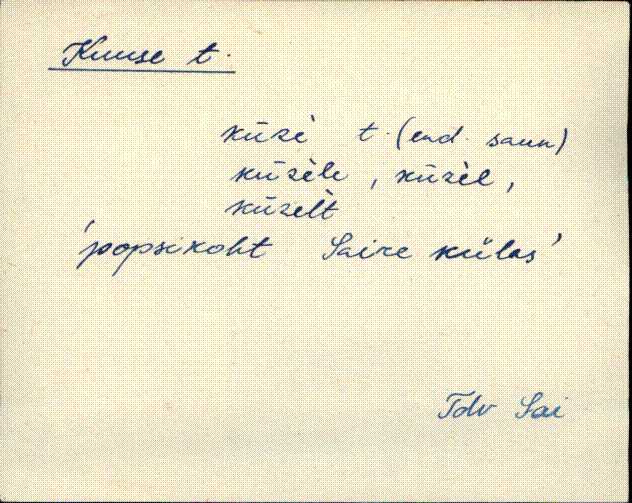 Kuuse t.
kūzè t. (end. saun)
kūzèle, kūzèl,
kūzelt
'popsikoht Saire külas'
Tdv Sai